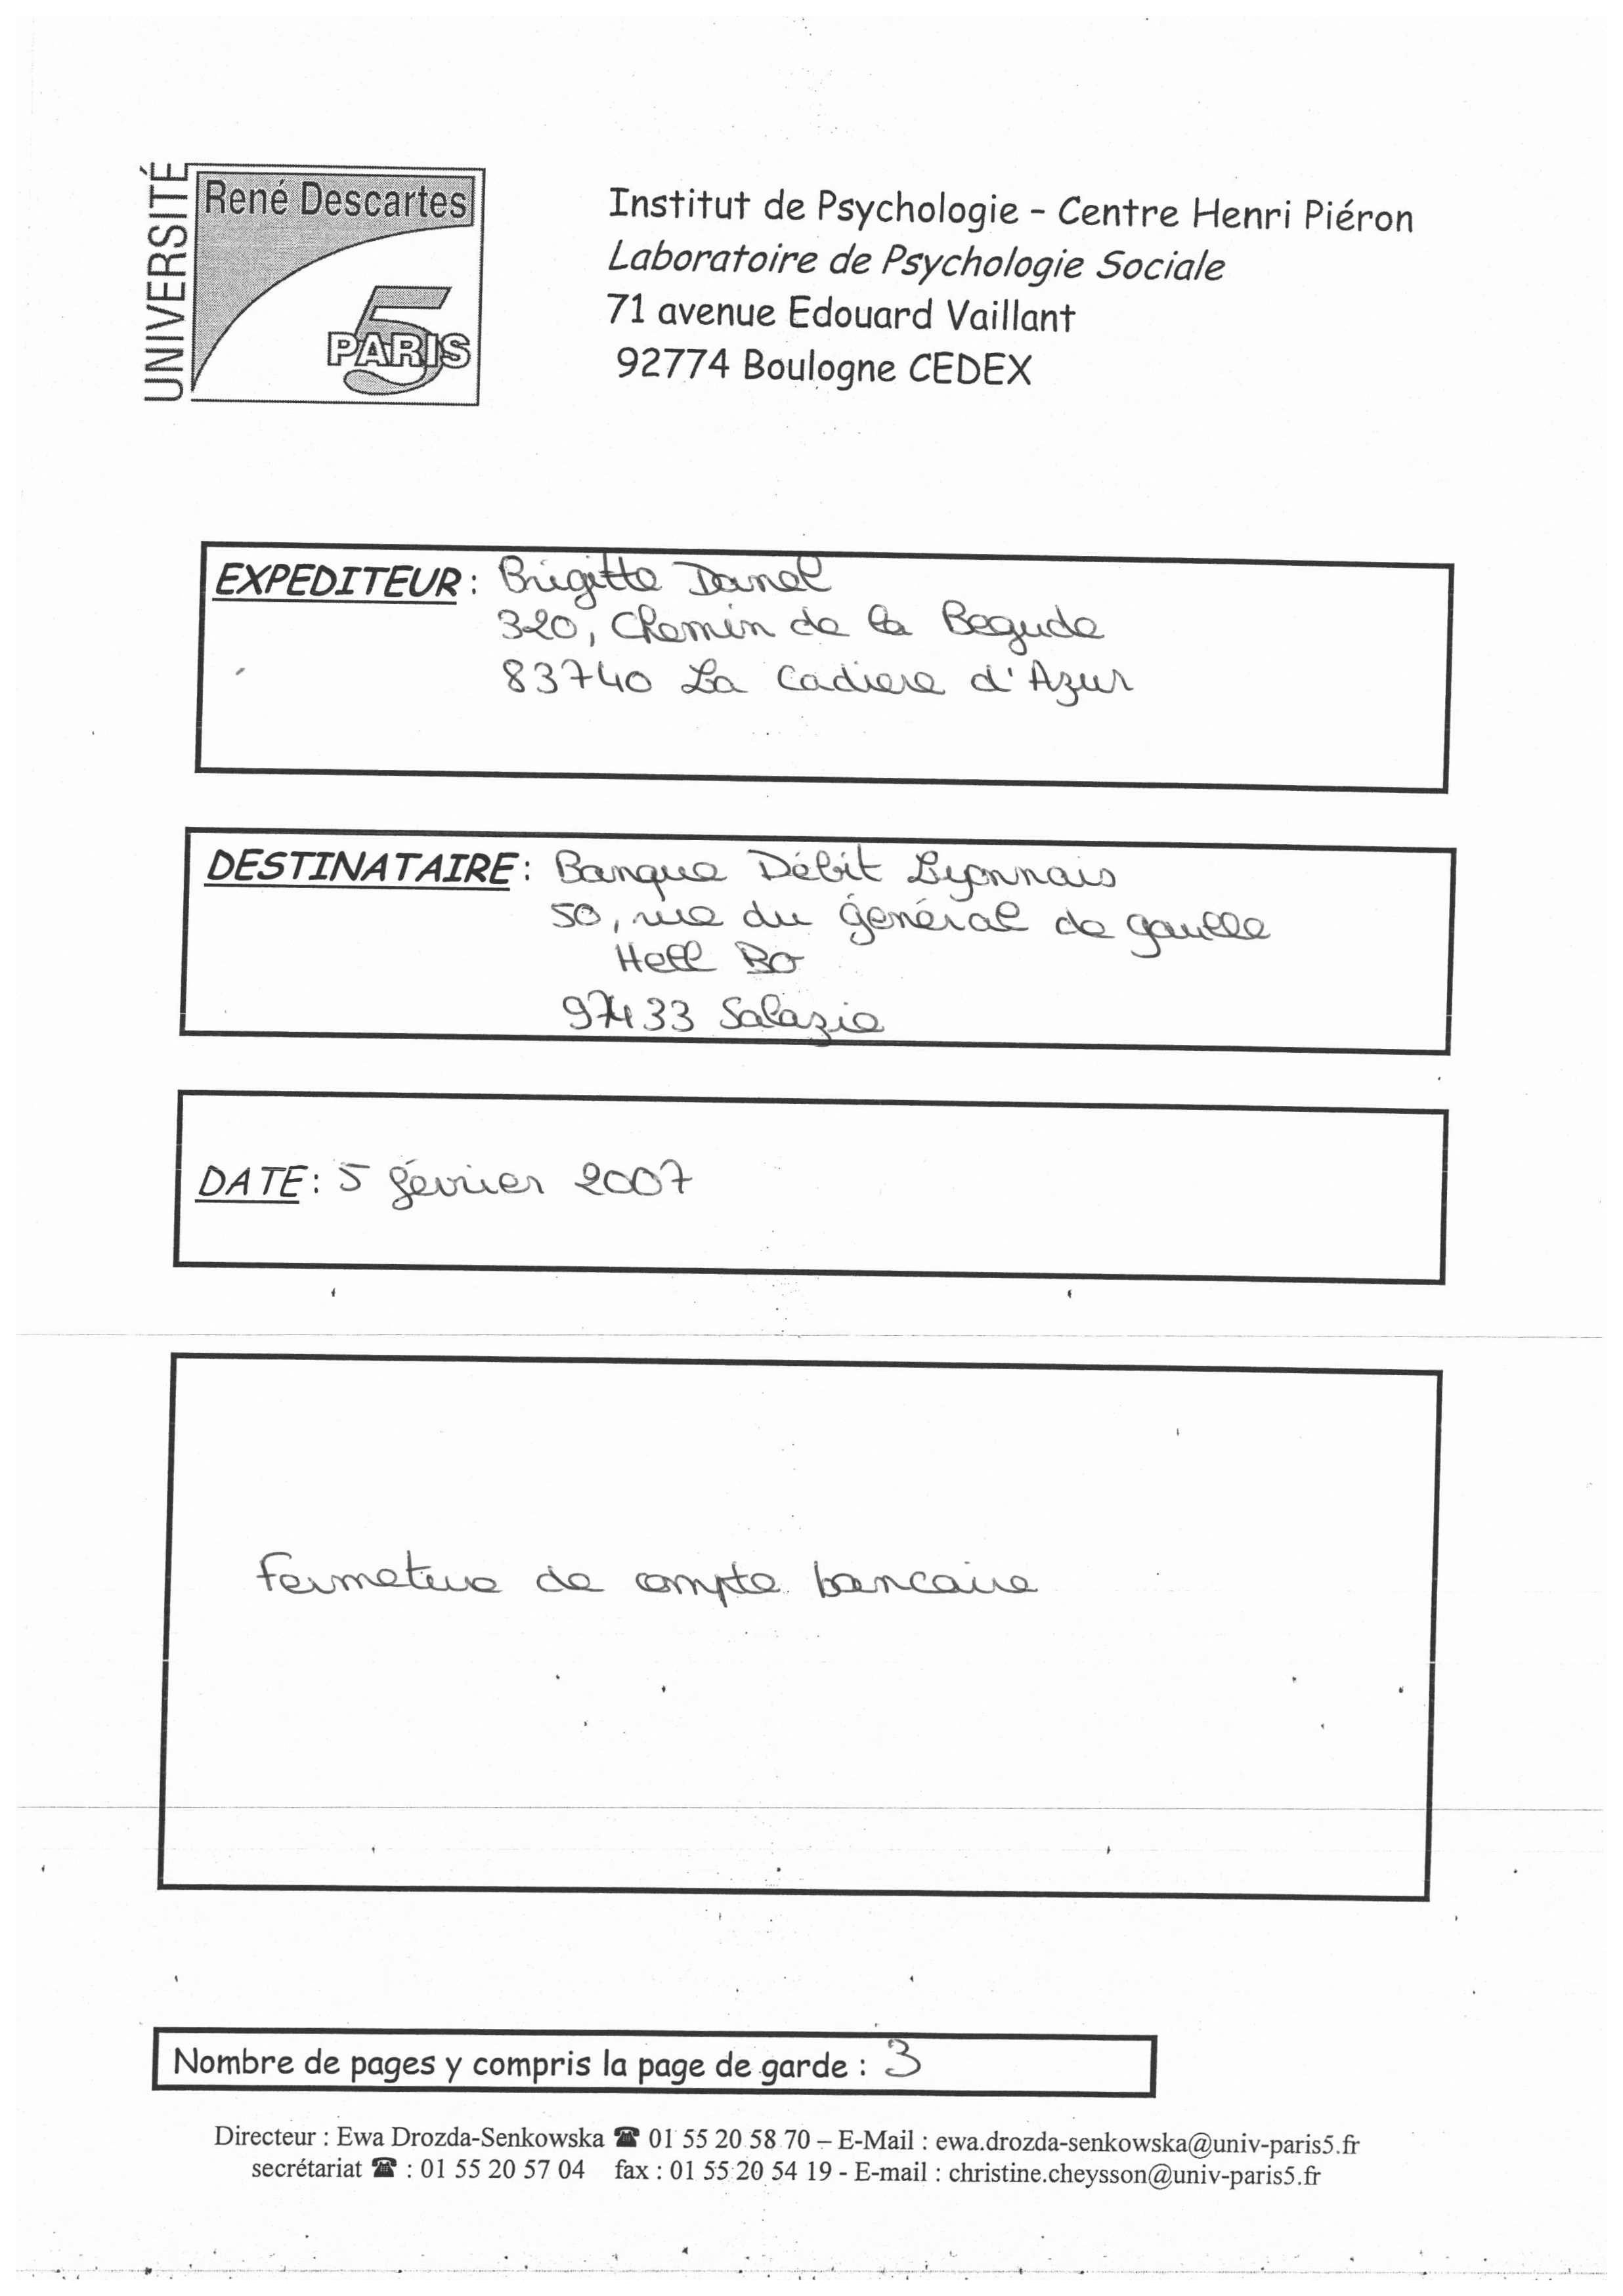 UNIVERSITÉ
René Descartes
PARIS 5
Institut de Psychologie - Centre Henri Piéron
Laboratoire de Psychologie Sociale
71 avenue Edouard Vaillant
92774 Boulogne CEDEX
EXPEDITEUR : Brigitte Danel
320, Chemin de la Begude
83740 La Cadiere d'Azur
DESTINATAIRE : Banque Débit Lyonnais
50, rue du général de gaulle
Hell BO
97433 Salazie
DATE : 5 février 2007
Fermeture de compte bancaire
Nombre de pages y compris la page de garde : 3
Directeur : Ewa Drozda-Senkowska ☎ 01 55 20 58 70 – E-Mail : ewa.drozda-senkowska@univ-paris5.fr
secrétariat ☎ : 01 55 20 57 04 fax : 01 55 20 54 19 - E-mail : christine.cheysson@univ-paris5.fr